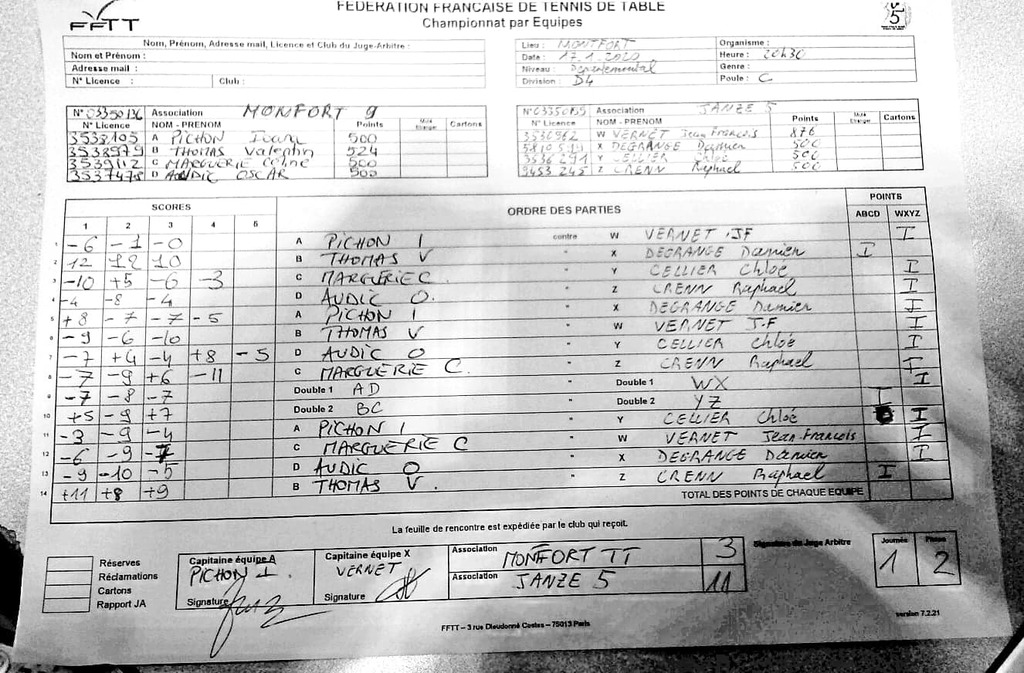 FEDERATION FRANCAISE DE TENNIS DE TABLE
FFTT
Championnat par Equipes
5
Nom, Prénom, Adresse mail, Licence et Club du Juge-Arbitre :
Nom et Prénom :
Adresse mail :
N° Licence : Club :
Lieu : MONTFORT Organisme :
Date : 17.1.2020 Heure : 20h30
Niveau : Départemental Genre :
Division : D4 Poule : C
N° 03350136 Association MONFORT 9
N° Licence NOM - PRENOM Points Cartons
A PICHON 500
3538979 B THOMAS Valentin 524
3539112 C MARGUERIE Coline 500
3537478 D AUDIC OSCAR 500
Association JANZE 5
N° Licence NOM - PRENOM Points Cartons
3536962 W VERNET Jean François 876
X DEGRANGE Damien 500
3536291 Y CELLIER Chloé 500
9453245 Z CRENN Raphael 500
SCORES ORDRE DES PARTIES POINTS
1 2 3 4 5 ABCD WXYZ
1 -6 -1 -0 A PICHON I contre W VERNET JF I
2 12 12 10 B THOMAS V " X DEGRANGE Damien I
3 -10 +5 -6 -3 C MARGUERIE C. " Y CELLIER Chloé I
4 -4 -8 -4 D AUDIC O. " Z CRENN Raphaël I
5 +8 -7 -7 -5 A PICHON I " X DEGRANGE Damien I
6 -9 -6 -10 B THOMAS V " W VERNET J-F I
7 -7 +4 -4 +8 -5 D AUDIC O " Y CELLIER Chloé I
8 -7 -9 +6 -11 C MARGUERIE C. " Z CRENN Raphael I
9 -7 -8 -7 Double 1 AD " Double 1 WX I
10 +5 -9 +7 Double 2 BC " Double 2 YZ I
11 -3 -9 -4 A PICHON I " Y CELLIER Chloé I
12 -6 -9 -7 C MARGUERIE C " W VERNET Jean-François I
13 -9 -10 -5 D AUDIC O " X DEGRANGE Damien I
14 +11 +8 +9 B THOMAS V. " Z CRENN Raphael I
TOTAL DES POINTS DE CHAQUE EQUIPE
La feuille de rencontre est expédiée par le club qui reçoit.
Réserves
Réclamations
Cartons
Rapport JA
Capitaine équipe A
PICHON I.
Signature
Capitaine équipe X
VERNET
Signature
Association MONFORT TT 3
Association JANZE 5 11
Signature du Juge Arbitre
Journée Phase
1 2
FFTT – 3 rue Dieudonné Costes – 75013 Paris
version 7.2.21